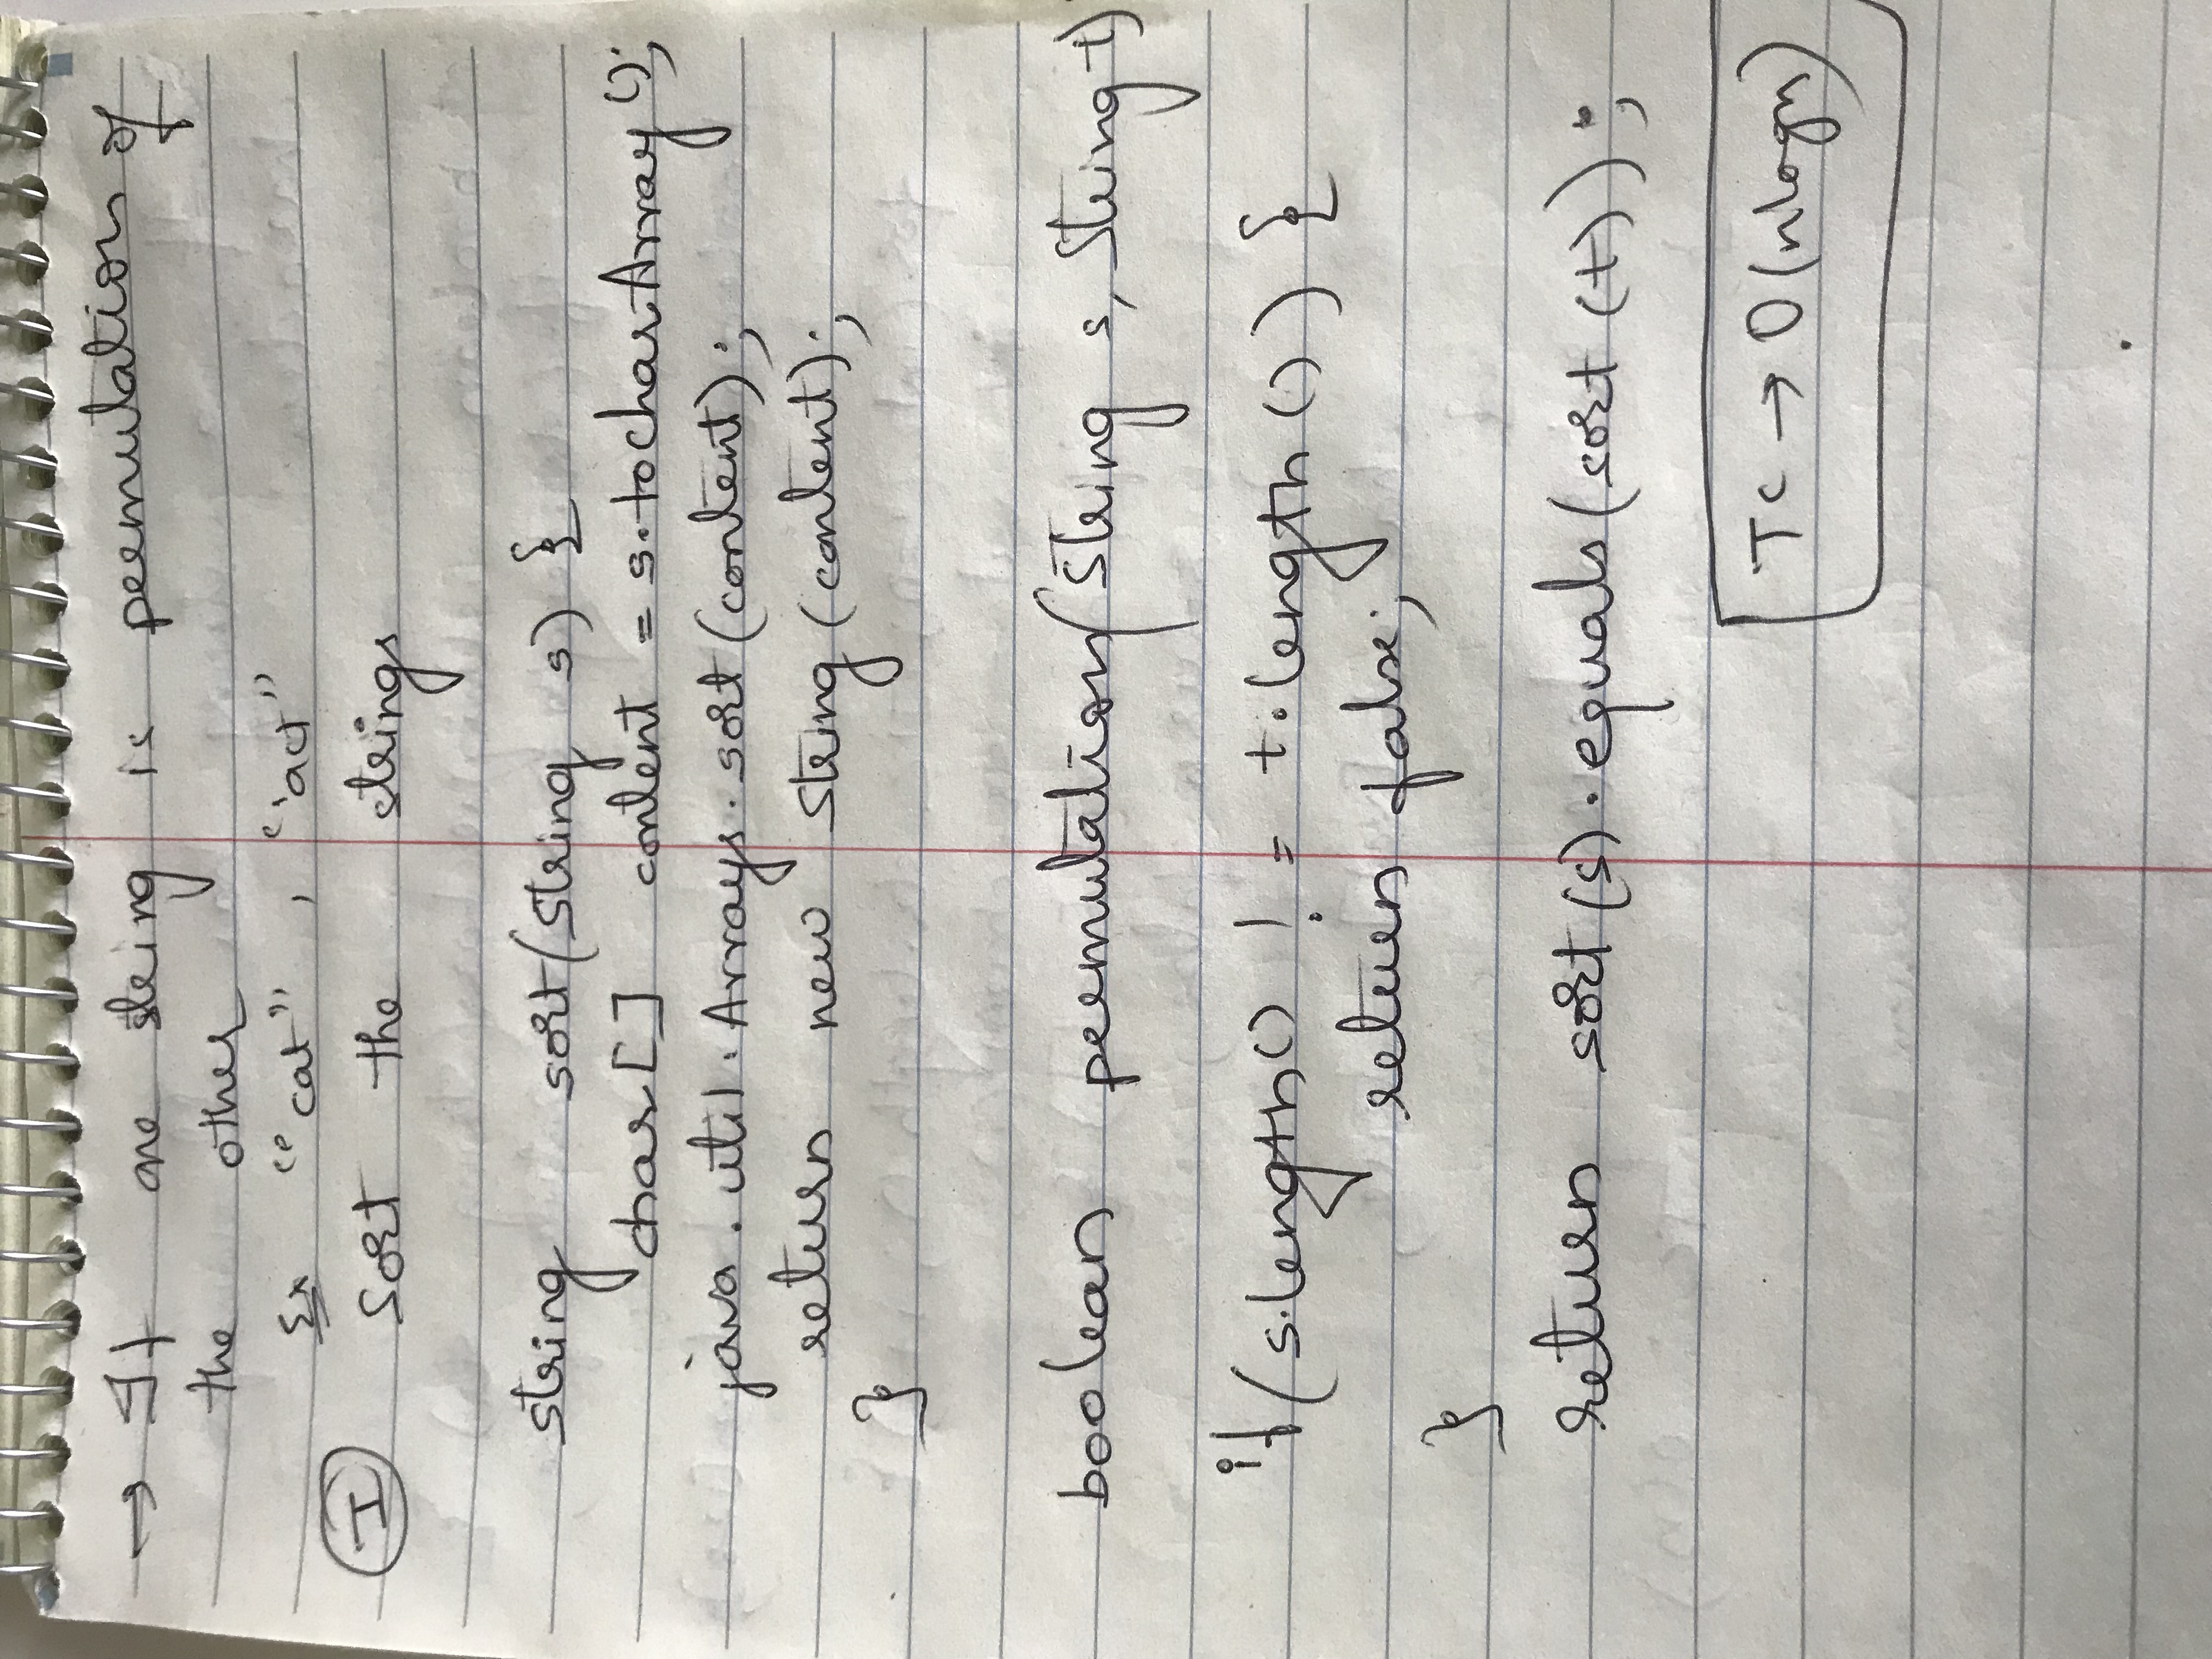 → If one string is permutation of
the other
Ex "cat", "act"
I Sort the strings
string sort(String s) {
char[] content = s.toCharArray();
java.util.Arrays.sort(content);
return new String(content);
}
boolean permutation(String s, String t)
if(s.length() != t.length()) {
return false;
}
return sort(s).equals(sort(t));
TC → O(nlogn)